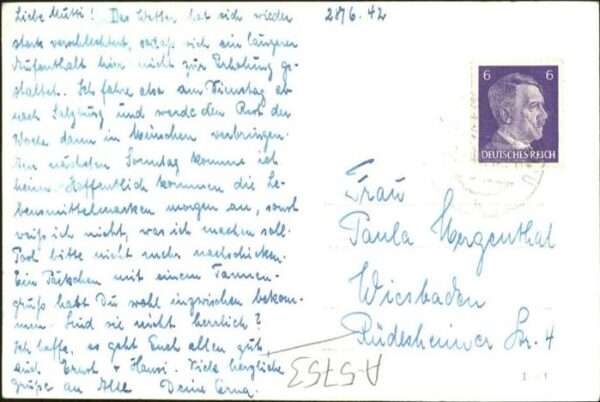 Liebe Mutti! Das Wetter hat sich wieder
stark verschlechtert, sodaß sich ein längerer
Aufenthalt hier nicht zur Erholung ge-
staltet. Ich fahre also am Dienstag ab
nach Salzburg und werde den Rest der
Woche dann in München verbringen.
Den nächsten Sonntag komme ich
heim. Hoffentlich kommen die Le-
bensmittelmarken morgen an, sonst
weiß ich nicht, was ich machen soll.
Post bitte nicht mehr nachschicken.
Ein Päckchen mit einem Tannen-
gruß habt Du wohl inzwischen bekom-
men. Sind sie nicht herrlich?
Ich hoffe, es geht Euch allen gut,
auch Ernst + Hansi. Viele herzliche
Grüße an Alle Deine Erna.
28/6.42
6 6
DEUTSCHES REICH
Frau
Paula Mergenthal
Wiesbaden
Rüdesheimer Str. 4
A-5753